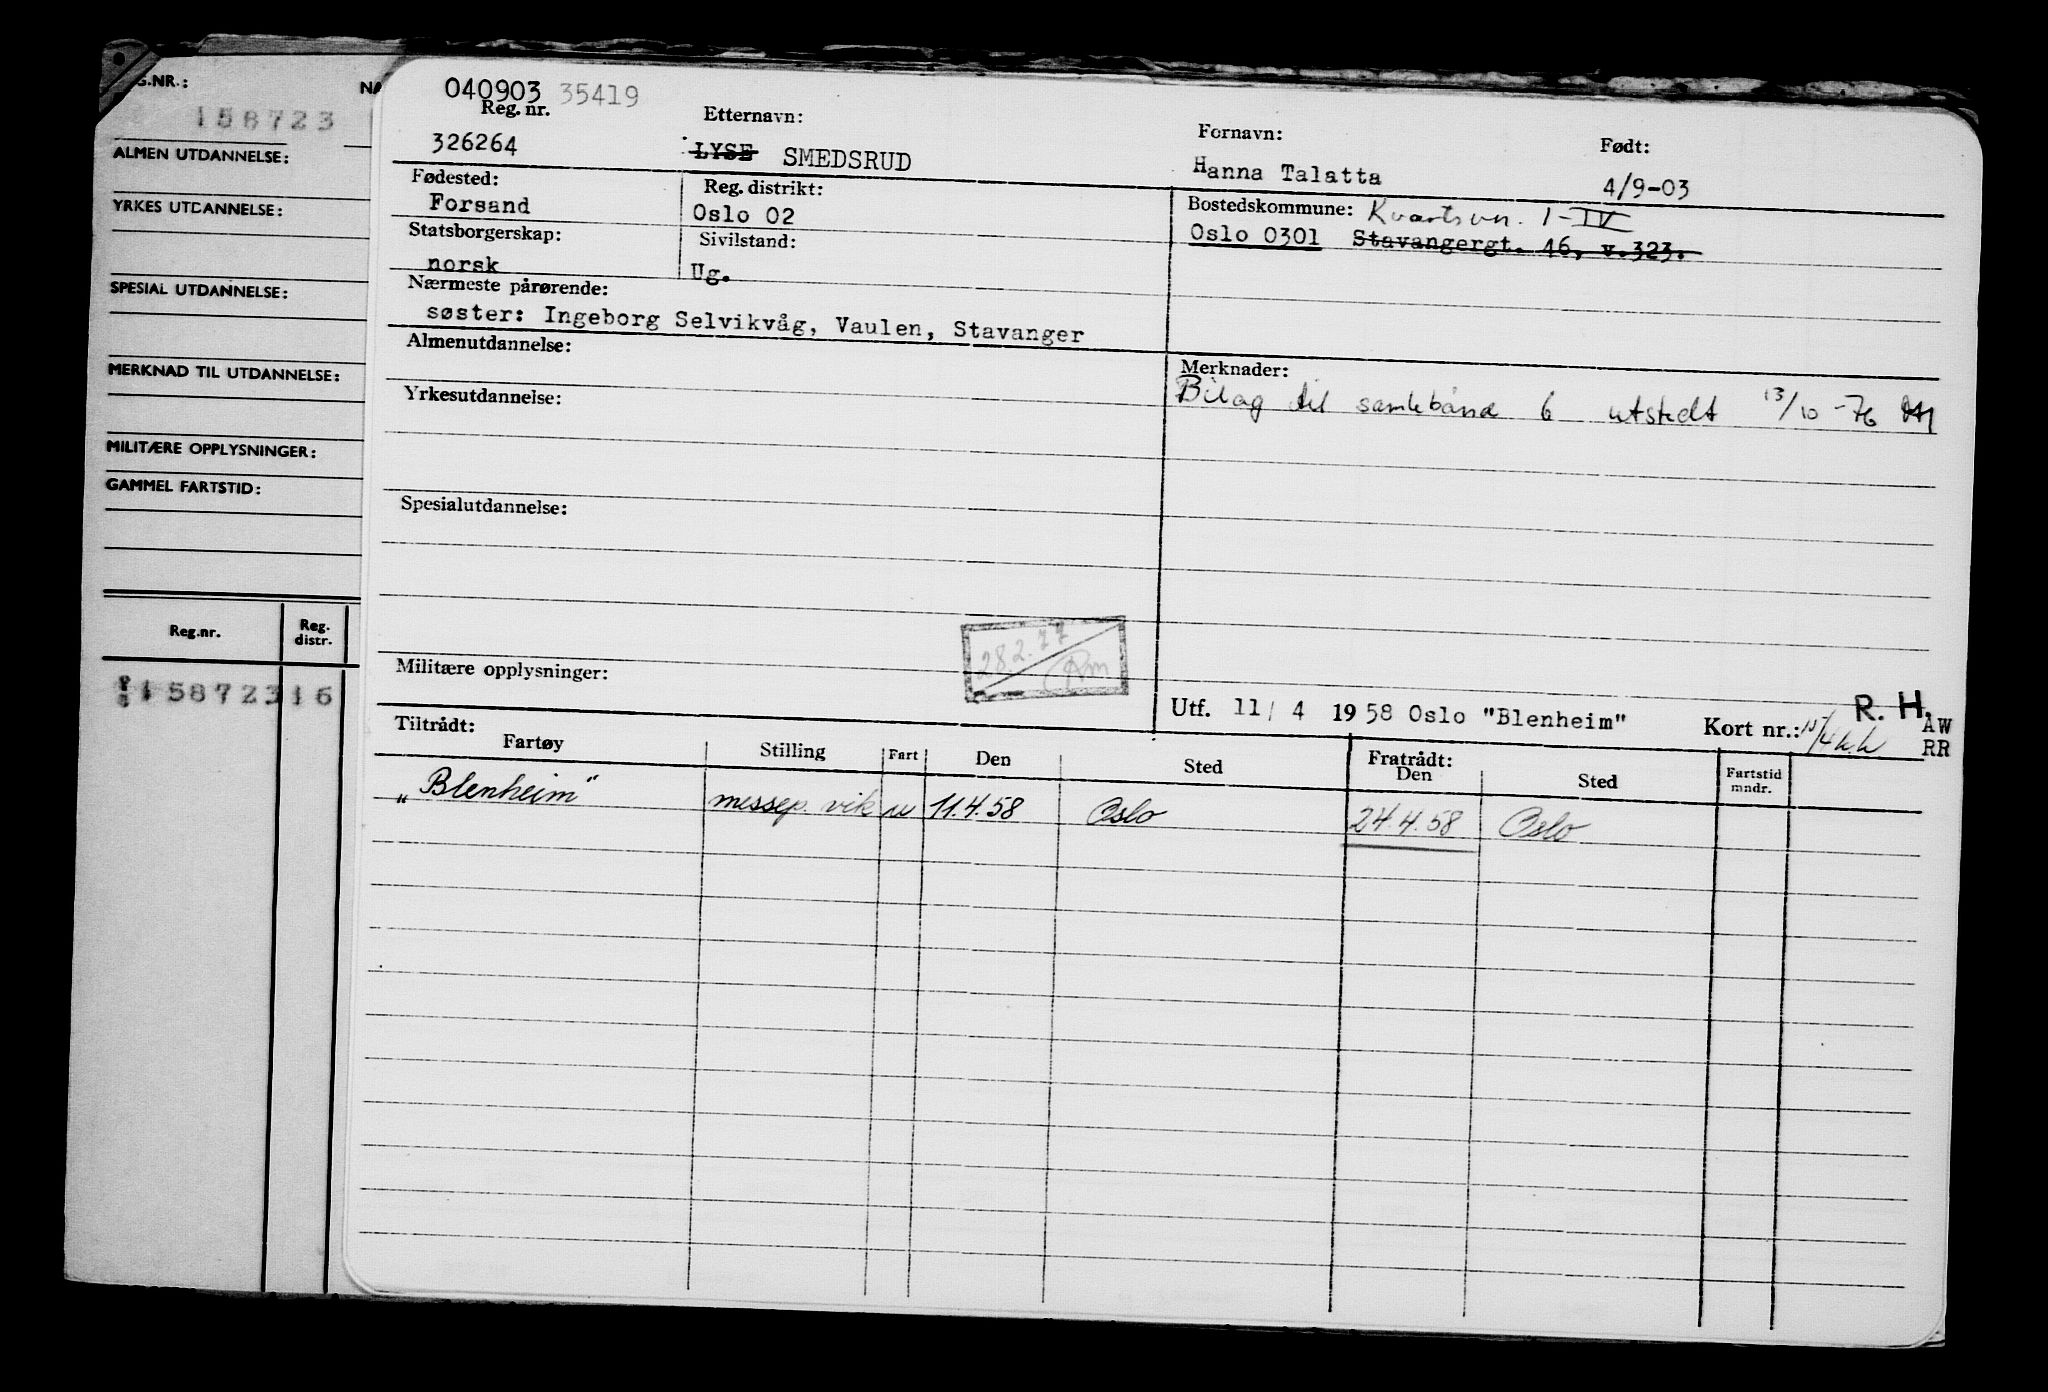 G.NR.:
NA
158723
ALMEN UTDANNELSE:
YRKES UTDANNELSE:
SPESIAL UTDANNELSE:
MERKNAD TIL UTDANNELSE:
MILITÆRE OPPLYSNINGER:
GAMMEL FARTSTID:
Reg.nr.
Reg. distr.
158723 16
040903 35419
Reg. nr. Etternavn: Fornavn: Født:
326264 LYSE SMEDSRUD Hanna Talatta 4/9-03
Fødested: Reg. distrikt: Bostedskommune: Kvartsvn. 1-IV
Forsand Oslo 02 Oslo 0301 Stavangergt. 46, v.323.
Statsborgerskap: Sivilstand:
norsk Ug.
Nærmeste pårørende:
søster: Ingeborg Selvikvåg, Vaulen, Stavanger
Almenutdannelse: Merknader:
Bilag til samlebånd 6 utstedt 13/10-76
Yrkesutdannelse:
Spesialutdannelse:
28.2.77
Militære opplysninger:
Utf. 11/ 4 1958 Oslo "Blenheim" Kort nr.: R. H.
AW
RR
Tiltrådt: Fratrådt:
Fartøy Stilling Fart Den Sted Den Sted Fartstid mndr.
„Blenheim" messep. vik u 11.4.58 Oslo 24.4.58 Oslo